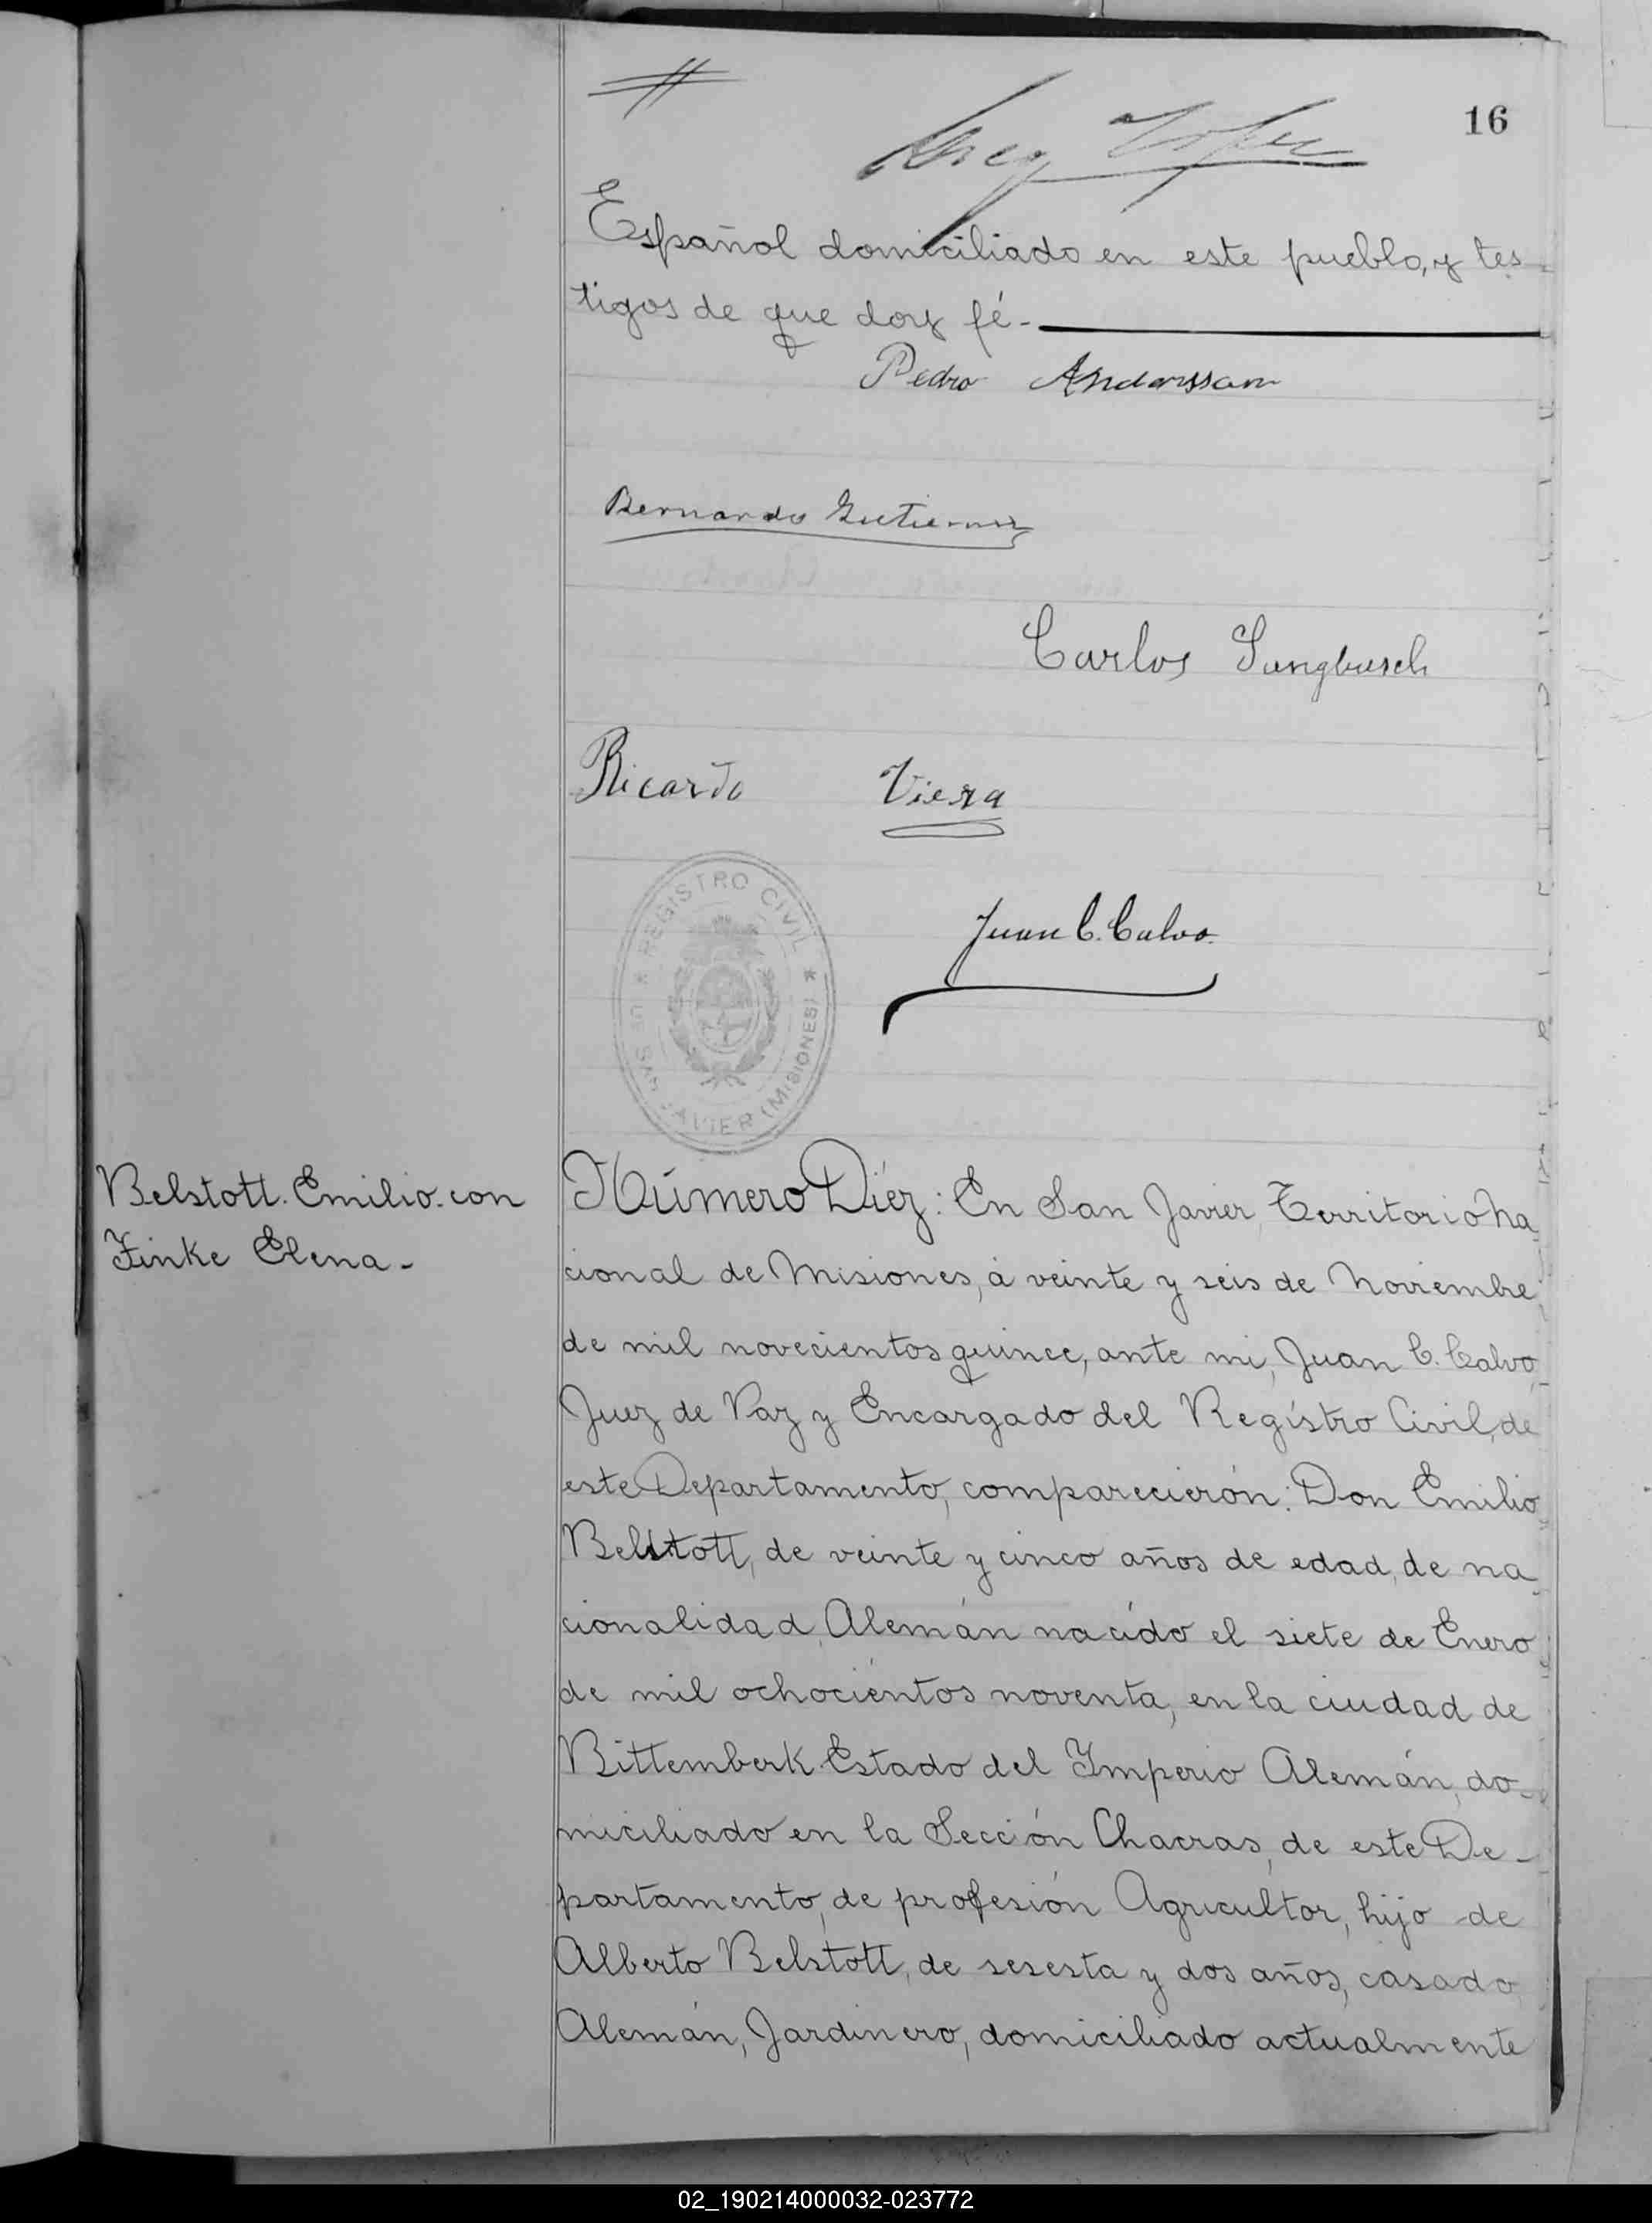 16
Español domiciliado en este pueblo, y tes-
tigos de que doy fé.-
Pedro Anderssan
Bernardo Gutierrez
Carlos Jungbusch
Ricardo Viera
REGISTRO CIVIL
SAN JAVIER (MISIONES)
Juan C. Calvo.
Belstott. Emilio. con
Finke Elena-
Número Diéz: En San Javier, Territorio Na
cional de Misiones, á veinte y seis de Noviembre
de mil novecientos quince, ante mi, Juan C. Calvo
Juez de Paz y Encargado del Regístro Civil, de
este Departamento, comparecierón: Don Emilio
Belstott, de veinte y cinco años de edad, de na
cionalidad Alemán nacído el siete de Enero
de mil ochociéntos noventa, en la ciudad de
Bittemberk Estado del Imperio Alemán, do-
miciliado en la Sección Chacras, de este De-
partamento, de profesión Agricultor, hijo de
Alberto Belstott, de sesesta y dos años, casado
Alemán, Jardinero, domiciliado actualmente
02_190214000032-023772